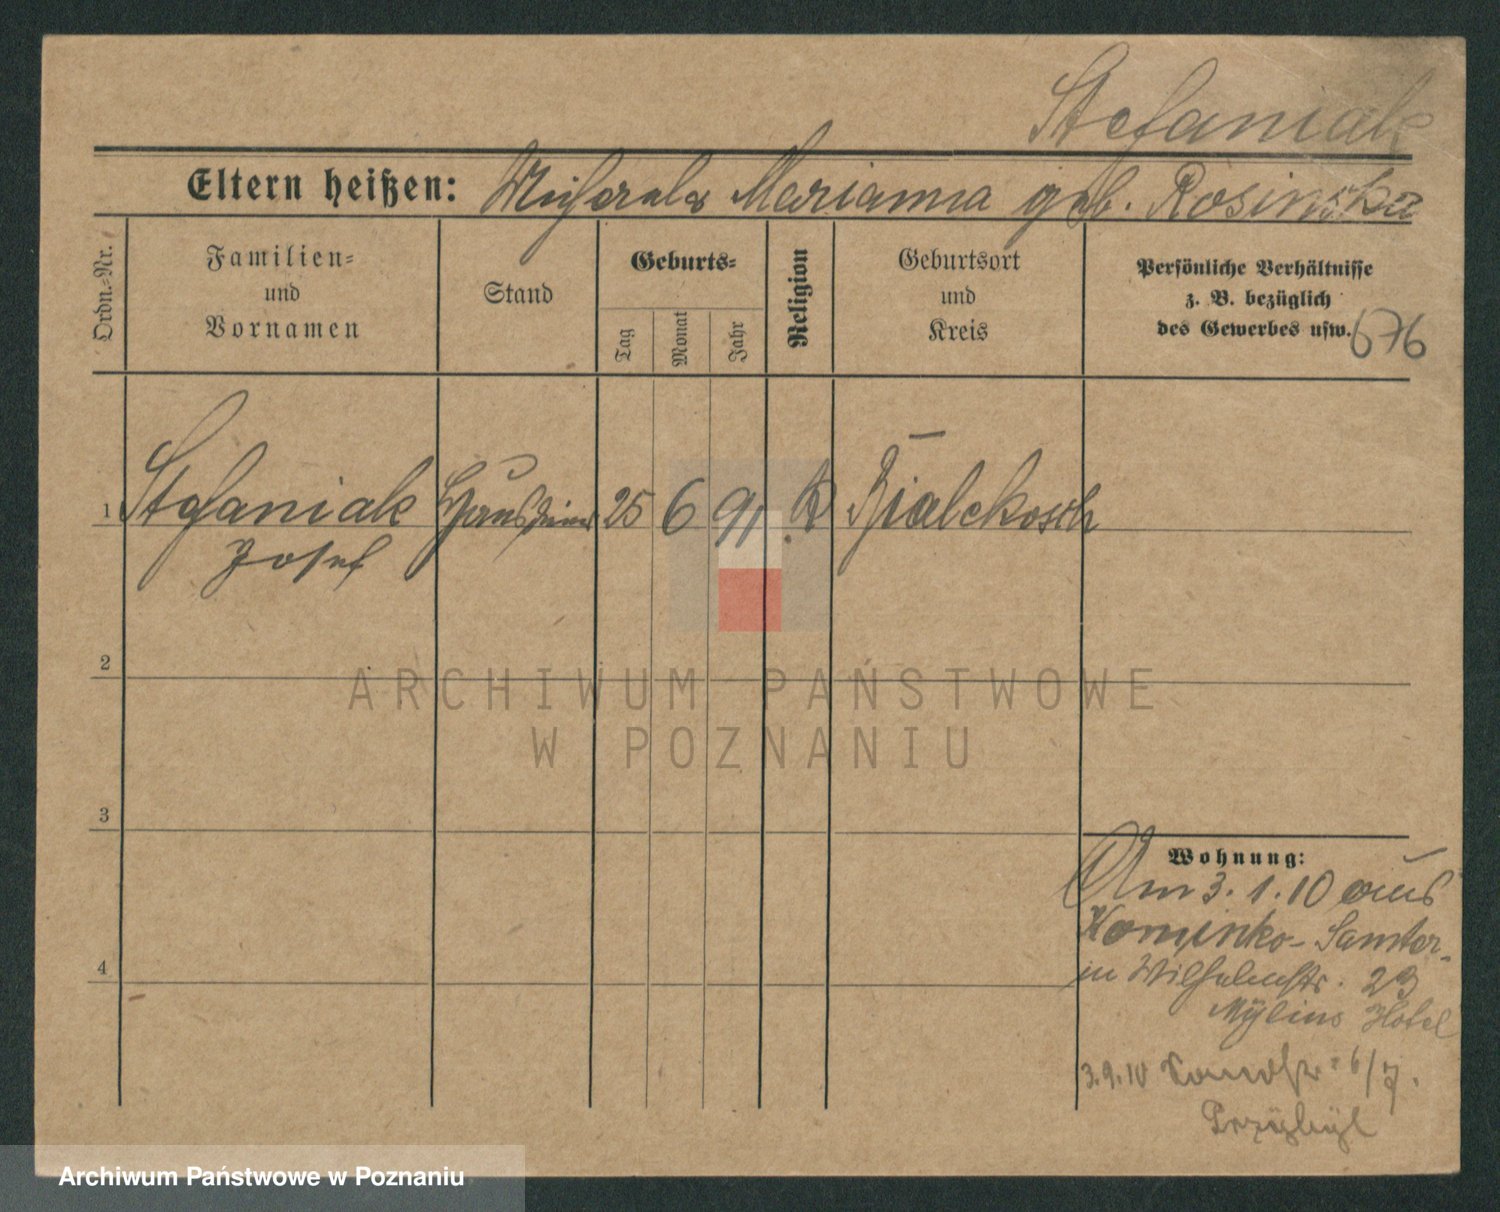 Stefaniak
Eltern heißen: Michael u Marianna geb. Rosinska
Ordn.-Nr.
Familien-
und
Vornamen
Stand
Geburts-
Tag
Monat
Jahr
Religion
Geburtsort
und
Kreis
Persönliche Verhältnisse
z. B. bezüglich
des Gewerbes usw.
676
1 Stefaniak Hausdiener 25 6 91 k Bialekosch
Josef
2
3
4
Wohnung:
Am 3. 1. 10 aus
Kominko- Samter-
in Wilhelmstr. 23
Mylius Hotel
3.9.10 6/7.
Przybyl
ARCHIWUM PAŃSTWOWE
W POZNANIU
Archiwum Państwowe w Poznaniu